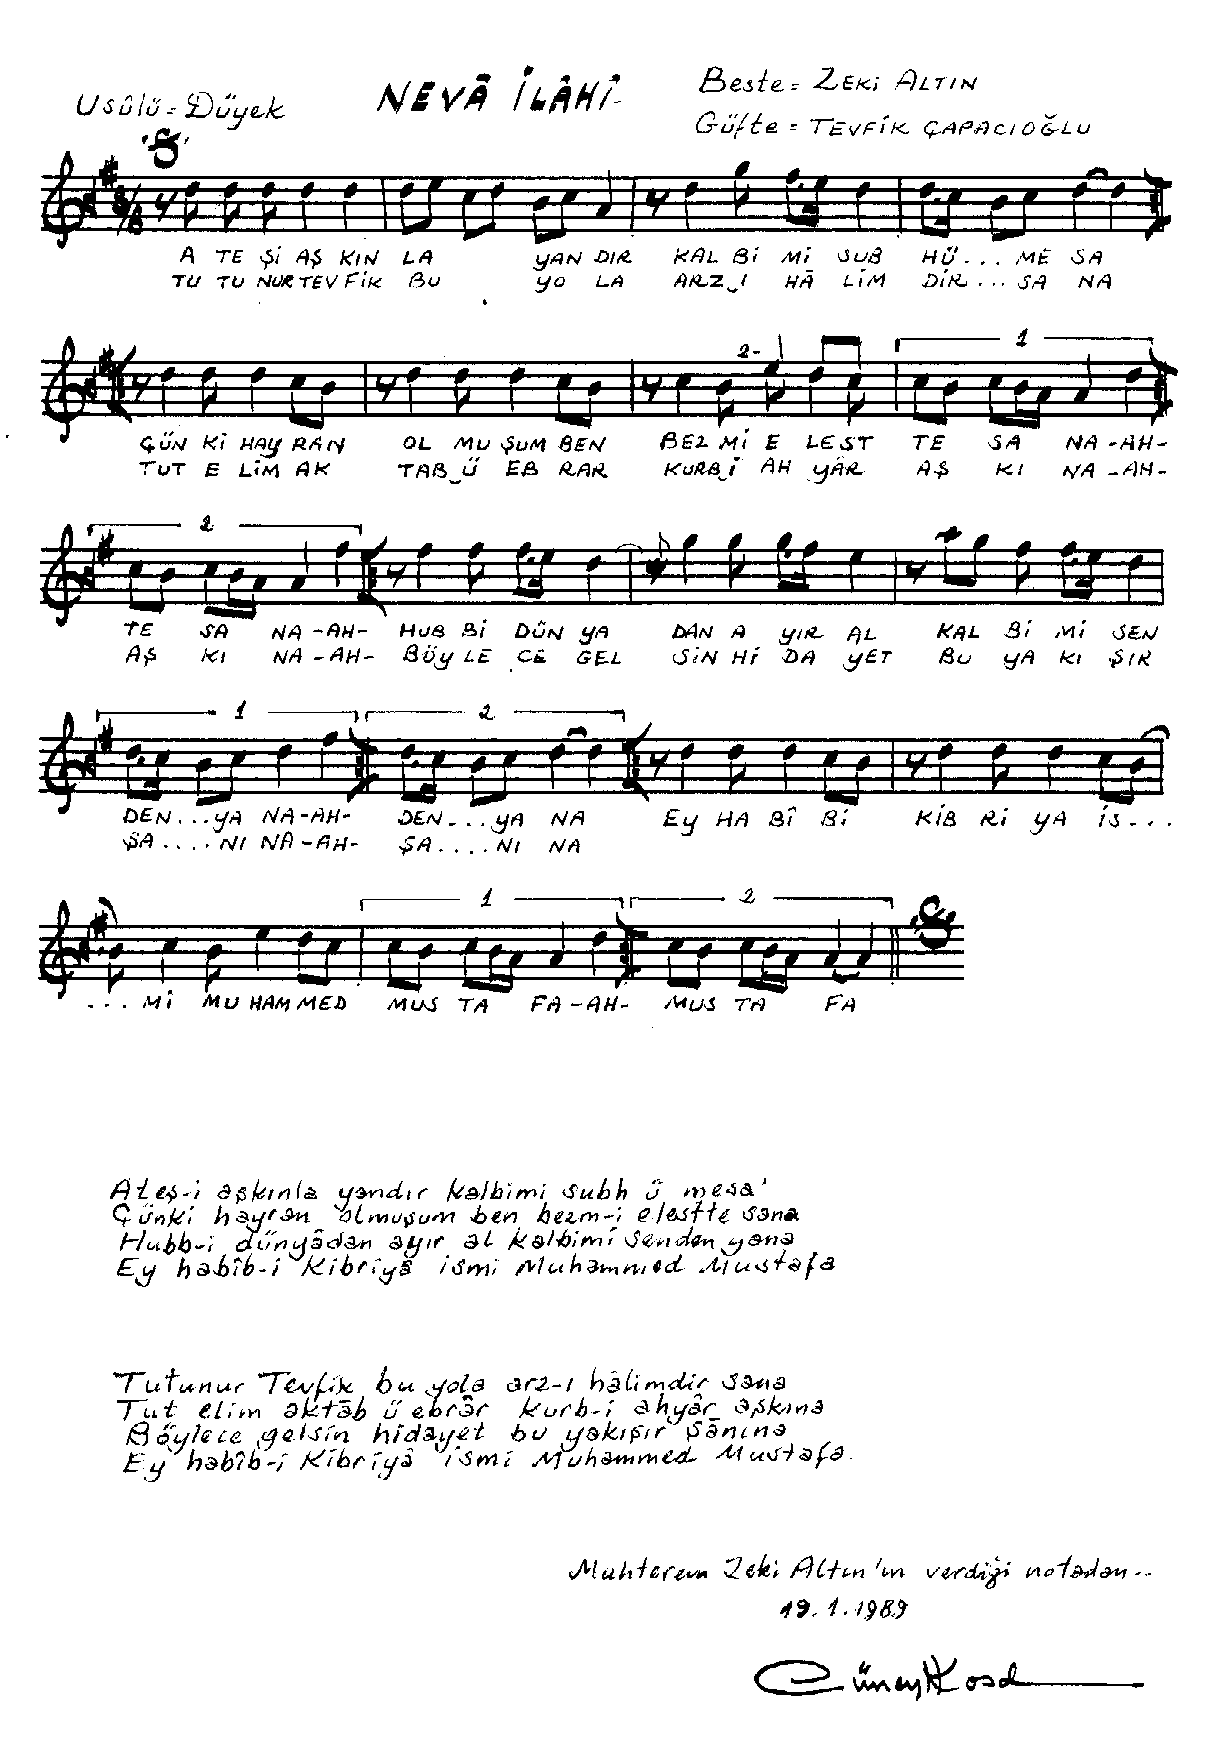 Usûlü = Düyek
NEVÂ İLÂHİ
Beste = ZEKİ ALTIN
Güfte = TEVFİK ÇAPACIOĞLU
8/8
A TE Şİ AŞ KIN LA YAN DIR KAL Bİ Mİ SUB HÜ... ME SA
TU TU NUR TEV FİK BU YO LA ARZ_I HÂ LİM DİR... SA NA
2-
1
ÇÜN Kİ HAY RAN OL MU ŞUM BEN BEZ Mİ E LEST TE SA NA-AH-
TUT E LİM AK TAB_Ü EB RAR KURB_İ AH YÂR AŞ KI NA-AH-
2
TE SA NA-AH- HUB Bİ DÜN YA DAN A YIR AL KAL Bİ Mİ SEN
AŞ KI NA-AH- BÖY LE CE GEL SİN Hİ DA YET BU YA KI ŞIR
1 2
DEN...YA NA-AH- DEN....YA NA EY HA BÎ Bİ KİB Rİ YA İS...
ŞA....NI NA-AH- ŞA....NI NA
1 2
...Mİ MU HAM MED MUS TA FA-AH- MUS TA FA
Ateş-i aşkınla yandır kalbimi subh ü mesa'
Çünki hayran olmuşum ben bezm-i elestte sana
Hubb-i dünyâdan ayır al kalbimi senden yana
Ey habîb-i Kibrîyâ ismi Muhammed Mustafa
Tutunur Tevfik bu yola arz-ı hâlimdir sana
Tut elim aktâb ü ebrâr kurb-i ahyâr aşkına
Böylece gelsin hidayet bu yakışır şânına
Ey habîb-i Kibrîyâ ismi Muhammed Mustafa.
Muhterem Zeki Altın'ın verdiği notadan..
19.1.1989